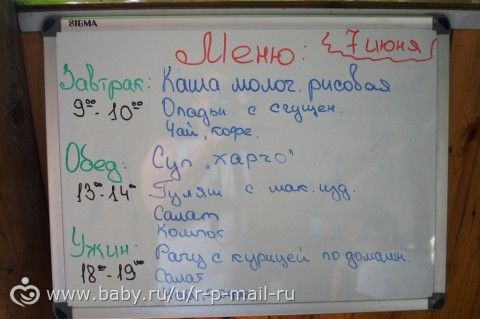 SIGMA
Меню: 7 июня
Завтрак: Каша молог. рисовая
9⁰⁰-10⁰⁰ Оладьи с сгущен.
Чай, кофе.
Обед: Суп "харчо"
13⁰⁰-14⁰⁰ Гуляш с мак. изд.
Салат
Компот
Ужин: Рагу с курицей по домашн.
18⁰⁰-19⁰⁰ Салат
www.baby.ru/u/r-p-mail-ru